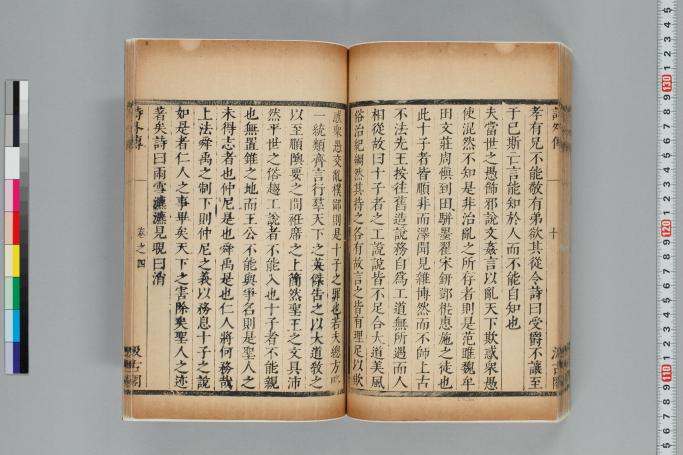 詩外傳
十
孝有兄不能敬有弟欲其從令詩曰受爵不讓至
于已斯亡言能知於人而不能自知也
夫當世之愚飾邪說文姦言以亂天下欺惑衆愚
使混然不知是非治亂之所存者則是范雎魏牟
田文莊周慎到田駢墨翟宋鈃鄧析惠施之徒也
此十子者皆順非而澤聞見雜博然而不師上古
不法先王按往舊造說務自為工道無所遇而人
相從故曰十子者之工說說皆不足合大道美風
俗治紀綱然其持之各有故言之皆有理足以欺
惑衆愚交亂樸鄙則是十子之罪也若夫總方略
一統類齊言行羣天下之英傑告之以大道教之
以至順隩要之間衽席之上簡然聖王之文具沛
然平世之俗趨工說者不能入也十子者不能親
也無置錐之地而王公不能與爭名則是聖人之
未得志者也仲尼是也舜禹是也仁人將何務哉
上法舜禹之制下則仲尼之義以務息十子之說
如是者仁人之事畢矣天下之害除矣聖人之迹
著矣詩曰雨雪瀌瀌見晛曰消
詩外傳
卷之四
汲古閣